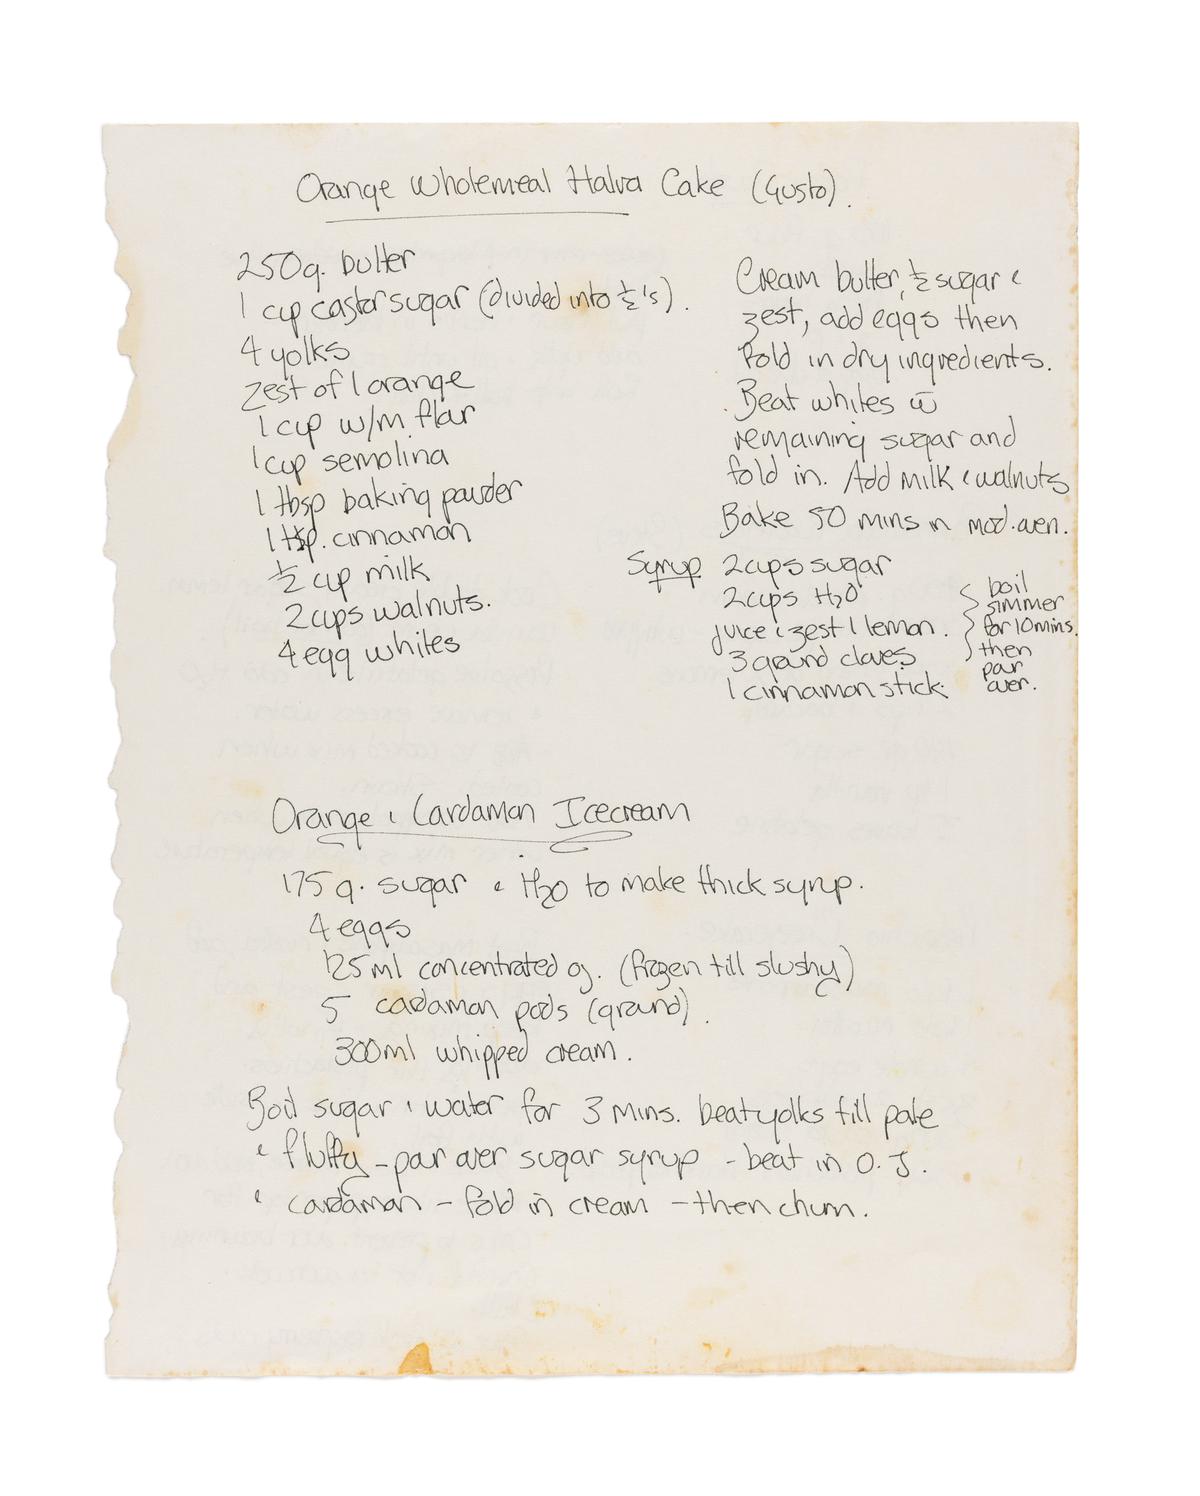 Orange Wholemeal Halva Cake (Gusto).
250g. butter
1 cup castor sugar (divided into ½'s).
4 yolks
zest of 1 orange
1 cup w/m flour
1 cup semolina
1 tbsp baking powder
1 tsp. cinnamon
½ cup milk
2 cups walnuts.
4 egg whites
Cream butter, ½ sugar &
zest, add eggs then
fold in dry ingredients.
Beat whites w̄
remaining sugar and
fold in. Add milk & walnuts
Bake 50 mins in mod. oven.
Syrup 2 cups sugar
2 cups H2O
juice & zest 1 lemon.
3 ground cloves
1 cinnamon stick.
boil
simmer
for 10 mins.
then
pour
over.
Orange & Cardamon Icecream
175g. sugar & H2O to make thick syrup.
4 eggs
125ml concentrated oj. (frozen till slushy)
5 cardamon pods (ground).
300ml whipped cream.
Boil sugar & water for 3 mins. beat yolks till pale
& fluffy - pour over sugar syrup - beat in O.J.
& cardamon - fold in cream - then churn.